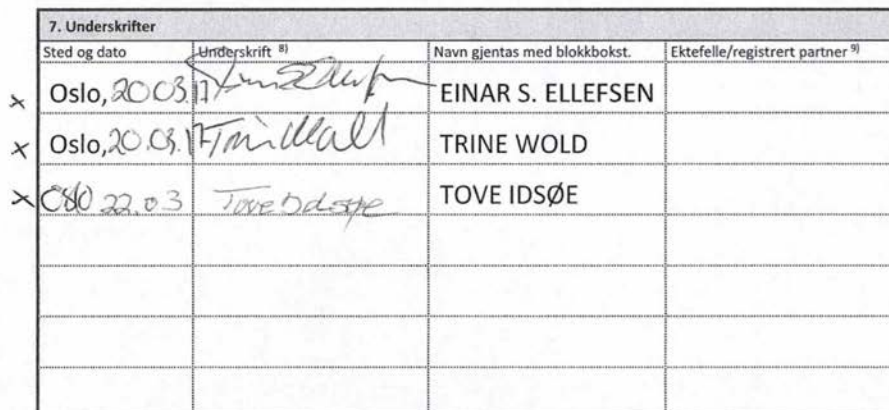 7. Underskrifter
Sted og dato Underskrift 8) Navn gjentas med blokkbokst. Ektefelle/registrert partner 9)
x Oslo, 20.03.17 EINAR S. ELLEFSEN
x Oslo, 20.03.17 Trine Wold TRINE WOLD
x Oslo 22.03 Tove Idsøe TOVE IDSØE